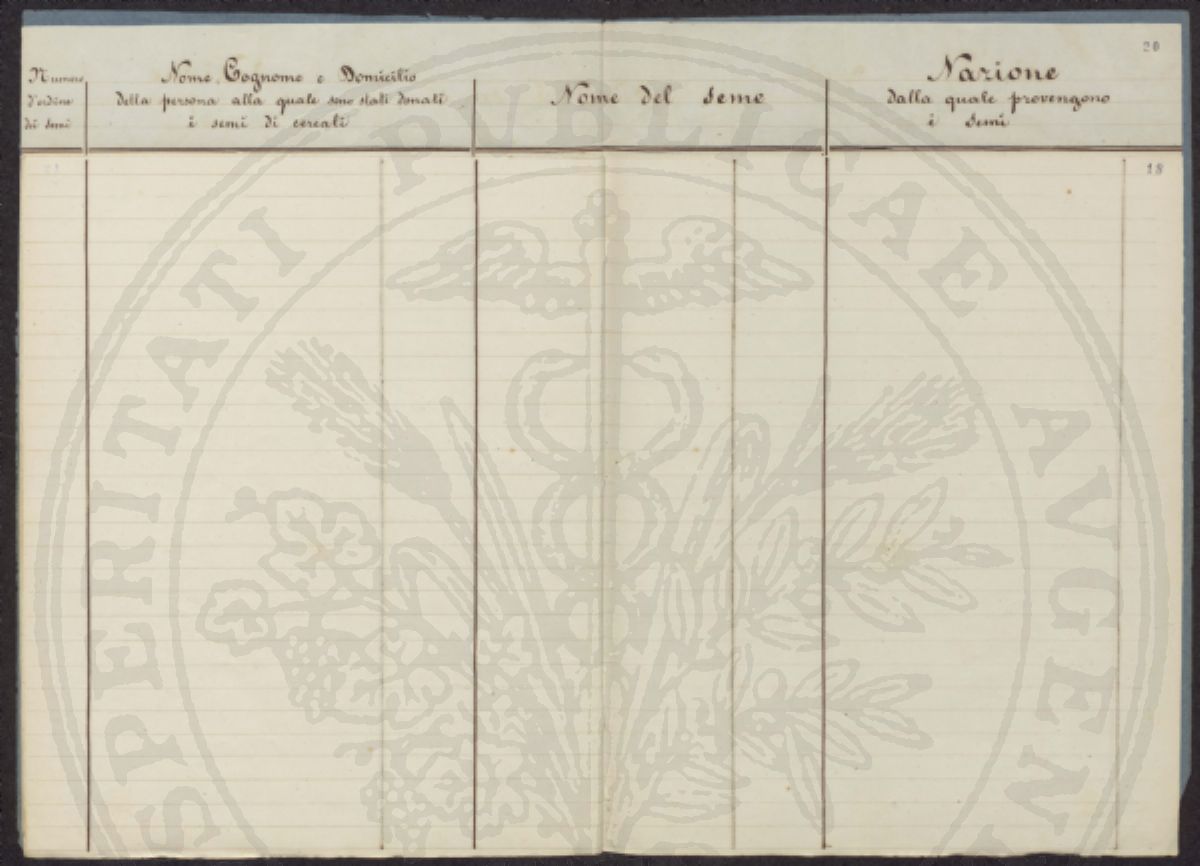 20
Numero
d'ordine
di semi
Nome, Cognome e Domicilio
della persona alla quale sono stati donati
i semi di cereali
Nome del seme
Nazione
dalla quale provengono
i semi
18
PROSPERITATI PVBLICAE AVGENDAE